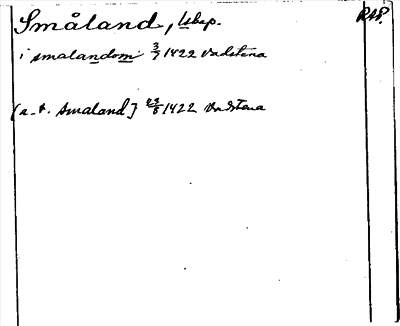 Småland, lskp. RAP.
i smalandom 3/7 1422 Vadstena
[a-t. Smaland] 29/8 1422 Vadstena